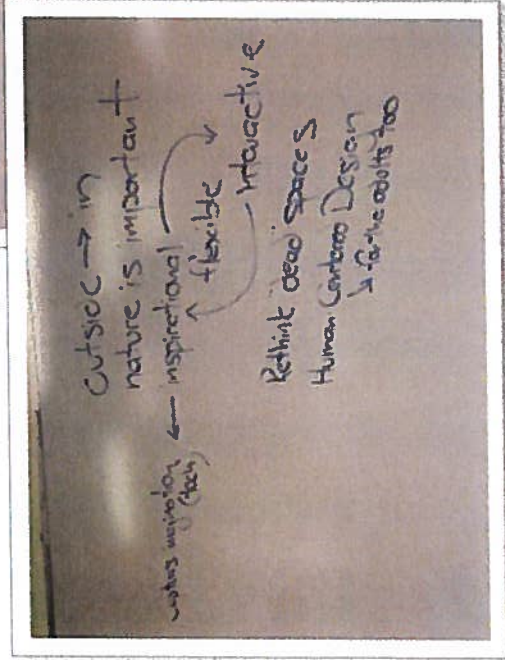 Outside → in
nature is important
inspirational
flexible
Interactive
(tech)
Rethink dead spaces
Human Centered Design
↳ for the adults too